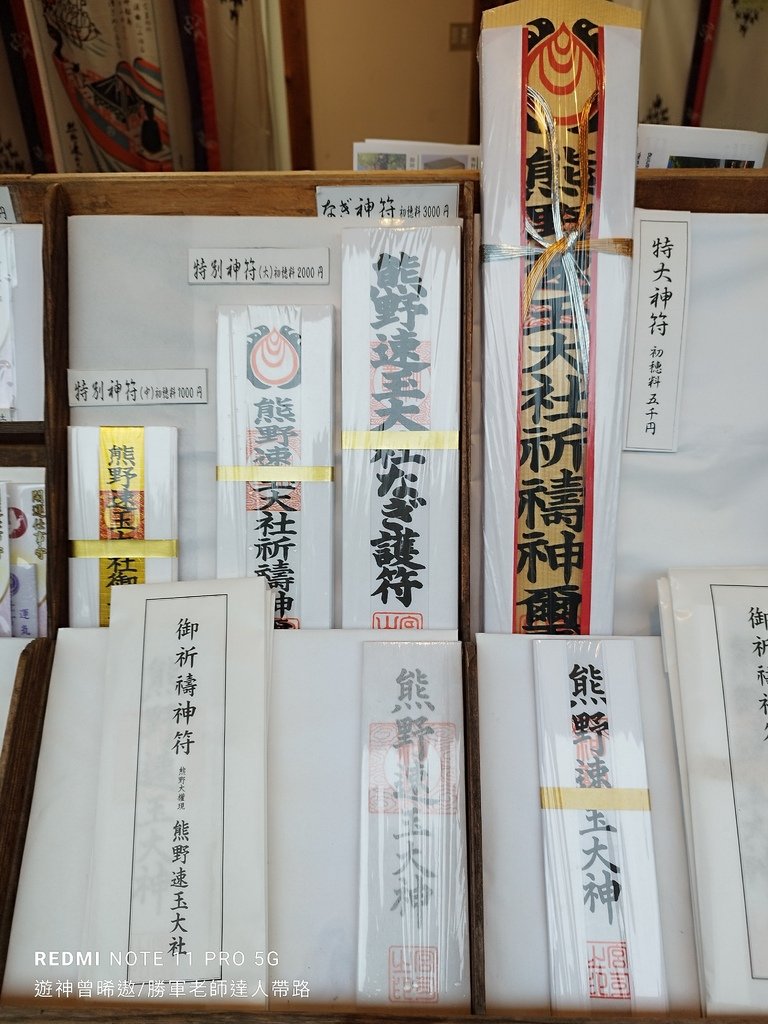 なぎ神符 初穂料3000円
特別神符(大)初穂料2000円
特別神符(中)初穂料1000円
特大神符 初穂料 五千円
熊野速玉大社祈禱神璽
熊野速玉大社なぎ護符
熊野速玉大社祈禱神
熊野速玉大社御
開運仕事守
運氣
御祈禱神符
熊野大権現
熊野速玉大社
熊野速玉大神
熊野速玉大神
御祈禱
REDMI NOTE 11 PRO 5G
遊神曾晞遨/勝軍老師達人帶路